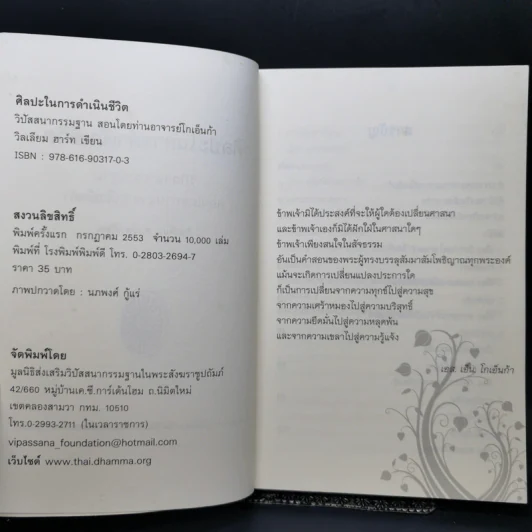 ศิลปะในการดำเนินชีวิต
วิปัสสนากรรมฐาน สอนโดยท่านอาจารย์โกเอ็นก้า
วิลเลียม ฮาร์ท เขียน
ISBN : 978-616-90317-0-3
สงวนลิขสิทธิ์
พิมพ์ครั้งแรก กรกฎาคม 2553 จำนวน 10,000 เล่ม
พิมพ์ที่ โรงพิมพ์พิมพ์ดี โทร. 0-2803-2694-7
ราคา 35 บาท
ภาพปกวาดโดย : นภพงศ์ กู้แร่
จัดพิมพ์โดย
มูลนิธิส่งเสริมวิปัสสนากรรมฐานในพระสังฆราชูปถัมภ์
42/660 หมู่บ้านเค.ซี.การ์เด้นโฮม ถ.นิมิตใหม่
เขตคลองสามวา กทม. 10510
โทร.0-2993-2711 (ในเวลาราชการ)
vipassana_foundation@hotmail.com
เว็บไซต์ www.thai.dhamma.org
ข้าพเจ้ามิได้ประสงค์ที่จะให้ผู้ใดต้องเปลี่ยนศาสนา
และข้าพเจ้าเองก็มิได้ฝักใฝ่ในศาสนาใดๆ
ข้าพเจ้าเพียงสนใจในสัจธรรม
อันเป็นคำสอนของพระผู้ทรงบรรลุสัมมาสัมโพธิญาณทุกพระองค์
แม้นจะเกิดการเปลี่ยนแปลงประการใด
ก็เป็นการเปลี่ยนจากความทุกข์ไปสู่ความสุข
จากความเศร้าหมองไปสู่ความบริสุทธิ์
จากความยึดมั่นไปสู่ความหลุดพ้น
และจากความเขลาไปสู่ความรู้แจ้ง
เอส เอ็น โกเอ็นก้า